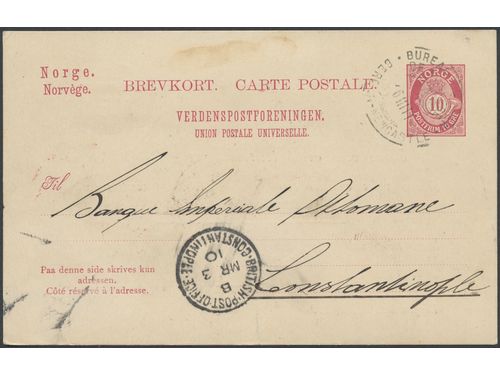 Norge.
Norvège.
BREVKORT. CARTE POSTALE.
VERDENSPOSTFORENINGEN.
UNION POSTALE UNIVERSELLE.
NORGE
10
POSTFRIM. 10 ØRE
Til
Banque Impériale Ottomane
Constantinople
BRITISH·POST·OFFICE·CONSTANTINOPLE
B
MR 3
10
Paa denne side skrives kun
adressen.
Côté réservé à l'adresse.